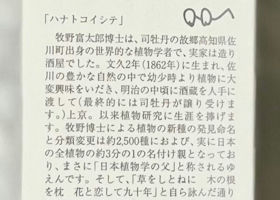 「ハナトコイシテ」
牧野富太郎博士は、司牡丹の故郷高知県佐
川町出身の世界的植物学者で、実家は造り
酒屋でした。文久2年(1862年)に生まれ、佐
川の豊かな自然の中で幼少時より植物に大
変興味をいだき、明治の中頃に酒蔵を人手に
渡して(最終的には司牡丹が譲り受けま
す。)上京。以来植物研究に生涯を捧げま
す。牧野博士による植物の新種の発見命名
と分類変更は約2,500種におよび、実に日本
の全植物の約3分の1の名付け親となってお
り、まさに「日本植物学の父」と称されるゆ
えんです。そして、「草をしとねに 木の根
を枕 花と恋して九十年」と自ら詠んだ通り